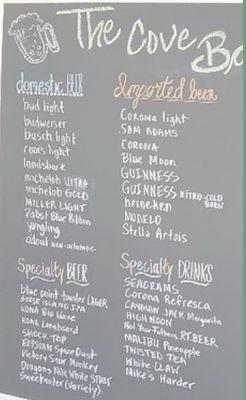 The Cove Be
domestic BEER
bud light
budweiser
busch light
coors light
landshark
michelob ULTRA
michelob GOLD
MILLER LIGHT
Pabst Blue Ribbon
yuengling
odoul non-alcoholic
Imported beer
Corona light
SAM ADAMS
CORONA
Blue Moon
GUINNESS
GUINNESS NITRO-COLD
heineken
MODELO
Stella Artois
Specialty BEER
blue point toaster LAGER
GOOSE ISLAND IPA
KONA Big Wave
KONA Longboard
SHOCK TOP
ELYSIAN Space Dust
Victory Sour Monkey
Dragons Milk White STOUT
Sweetwater (variety)
Specialty DRINKS
SEAGRAMS
Corona Refresca
CAYMAN JACK Margarita
HIGH NOON
Not Your Fathers RT. BEER
MALIBU Pineapple
TWISTED TEA
White CLAW
Mike's Harder